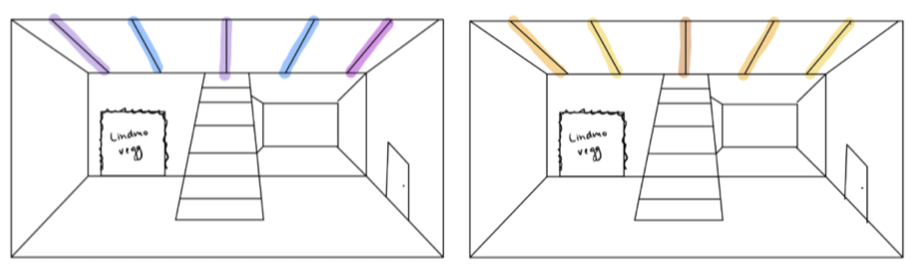 Lindmo
vegg
Lindmo
vegg